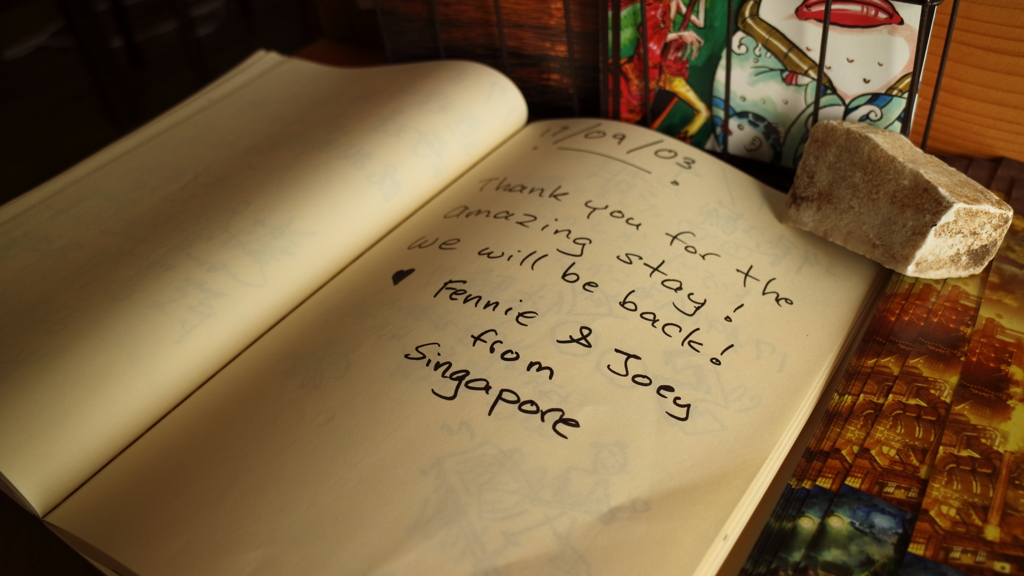 17/09/03
Thank you for the
amazing stay!
we will be back!
♥ Fennie & Joey
from
Singapore